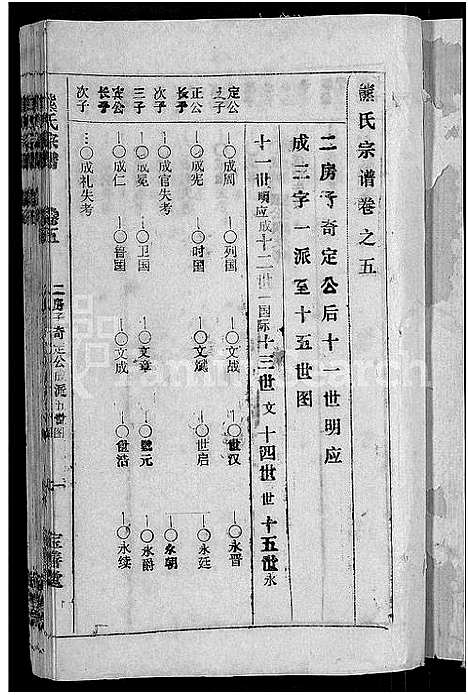 熊氏宗谱卷之五
二房子奇定公后十一世明应
成三字一派至十五世图
十一世明应成十二世国际十三世文十四世世十五世永
定公之子
成周 列国 文战 世汉 永晋
正公长子
成宪 时国 文斌 世启 永廷
次子
成官失考 永朝
三子
成冕 卫国 文章 元 永爵
宾公长子
成仁 鲁国 文成 世浩 永续
次子
成礼失考
熊氏宗谱
卷五
二房子奇定公成派五世图
一
善堂